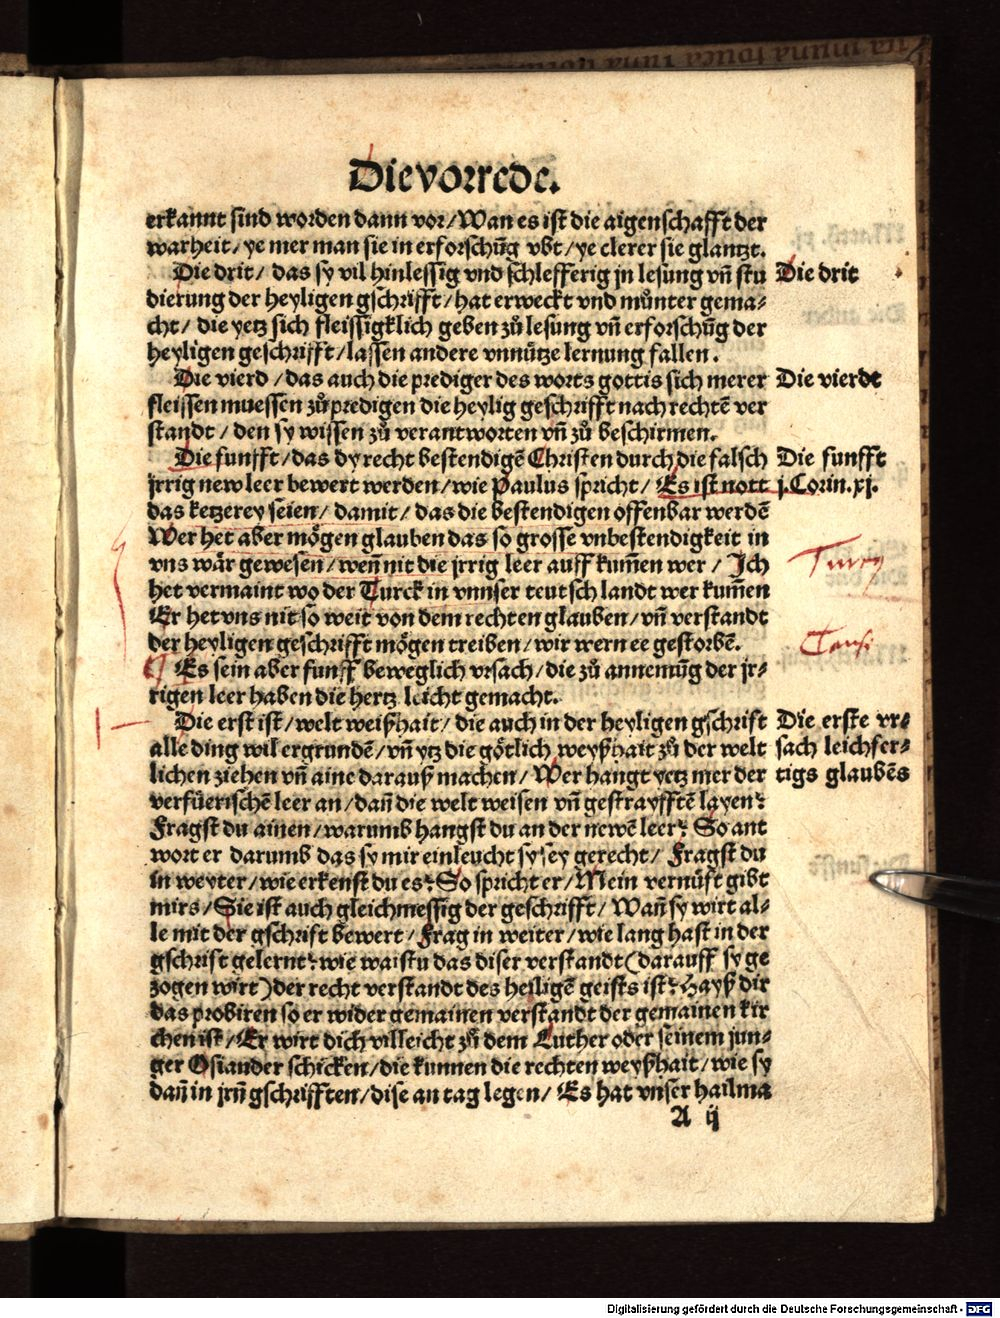 Die vorrede.
erkannt sind worden dann vor/Wan es ist die aigenschafft der
warheit/ ye mer man sie in erforschūg vbt/ye clerer sie glantzt.
Die drit/ das sy vil hinlessig vnd schlefferig jn lesung vn̄ stu
Die drit
dierung der heyligen gschrifft/ hat erweckt vnd můnter gema⸗
cht/ die yetz sich fleissigklich geben zů lesung vn̄ erforschūg der
heyligen geschrifft/lassen andere vnnütze lernung fallen.
Die vierd/das auch die prediger des worts gottis sich merer
Die vierdt
fleissen muessen zů predigen die heylig geschrifft nach rechtē ver
standt/ den sy wissen zů verantworten vn̄ zů beschirmen.
Die funfft/das dy recht bestendigē Christen durch die falsch
Die funfft
jrrig new leer bewert werden/wie Paulus spricht/ Es ist nott
j. Corin. xj.
das ketzerey seien/ damit/ das die bestendigen offenbar werdē
Wer het aber mögen glauben das so grosse vnbestendigkeit in
vns wår gewesen/wen̄ nit die jrrig leer auff kum̄en wer/ Ich
het vermaint wo der Turck in vnnser teutsch landt wer kum̄en
Er het vns nit so weit von dem rechten glauben/vn̄ verstandt
der heyligen geschrifft mögen treiben/wir wern ee gestorbē.
Es sein aber funff beweglich vrsach/die zů annemūg der jr⸗
rigen leer haben die hertz leicht gemacht.
Die erst ist/welt weißhait/die auch in der heyligen gschrift
Die erste vr⸗
alle ding wil ergrundē/vn̄ ytz die götlich weyßhait zů der welt
sach leichfer⸗
lichen ziehen vn̄ aine darauß machen/Wer hangt yetz mer der
tigs glaubēs
verfüerischē leer an/dan̄ die welt weisen vn̄ gestrayfftē layen?
Fragst du ainen/warumb hangst du an der newē leer? So ant
wort er darumb das sy mir einleucht sy sey gerecht/ Fragst du
in weyter/wie erkenst du es? So spricht er/Mein vernüft gibt
mirs/Sie ist auch gleichmessig der geschrifft/ Wan̄ sy wirt al⸗
le mit der gschrift bewert/Frag in weiter/wie lang hast in der
gschrift gelernt? wie waistu das diser verstandt(darauff sy ge
zogen wirt)der recht verstandt des heiligē geists ist? Hayß dir
das probiren so er wider gemainen verstandt der gemainen kir
chen ist/Er wirt dich villeicht zů dem Luther oder seinem jun⸗
ger Osiander schicken/die kunnen die rechten weyßhait/wie sy
dan̄ in jrn̄ gschrifften/dise an tag legen/ Es hat vnser hailma
A ij
Digitalisierung gefördert durch die Deutsche Forschungsgemeinschaft - DFG